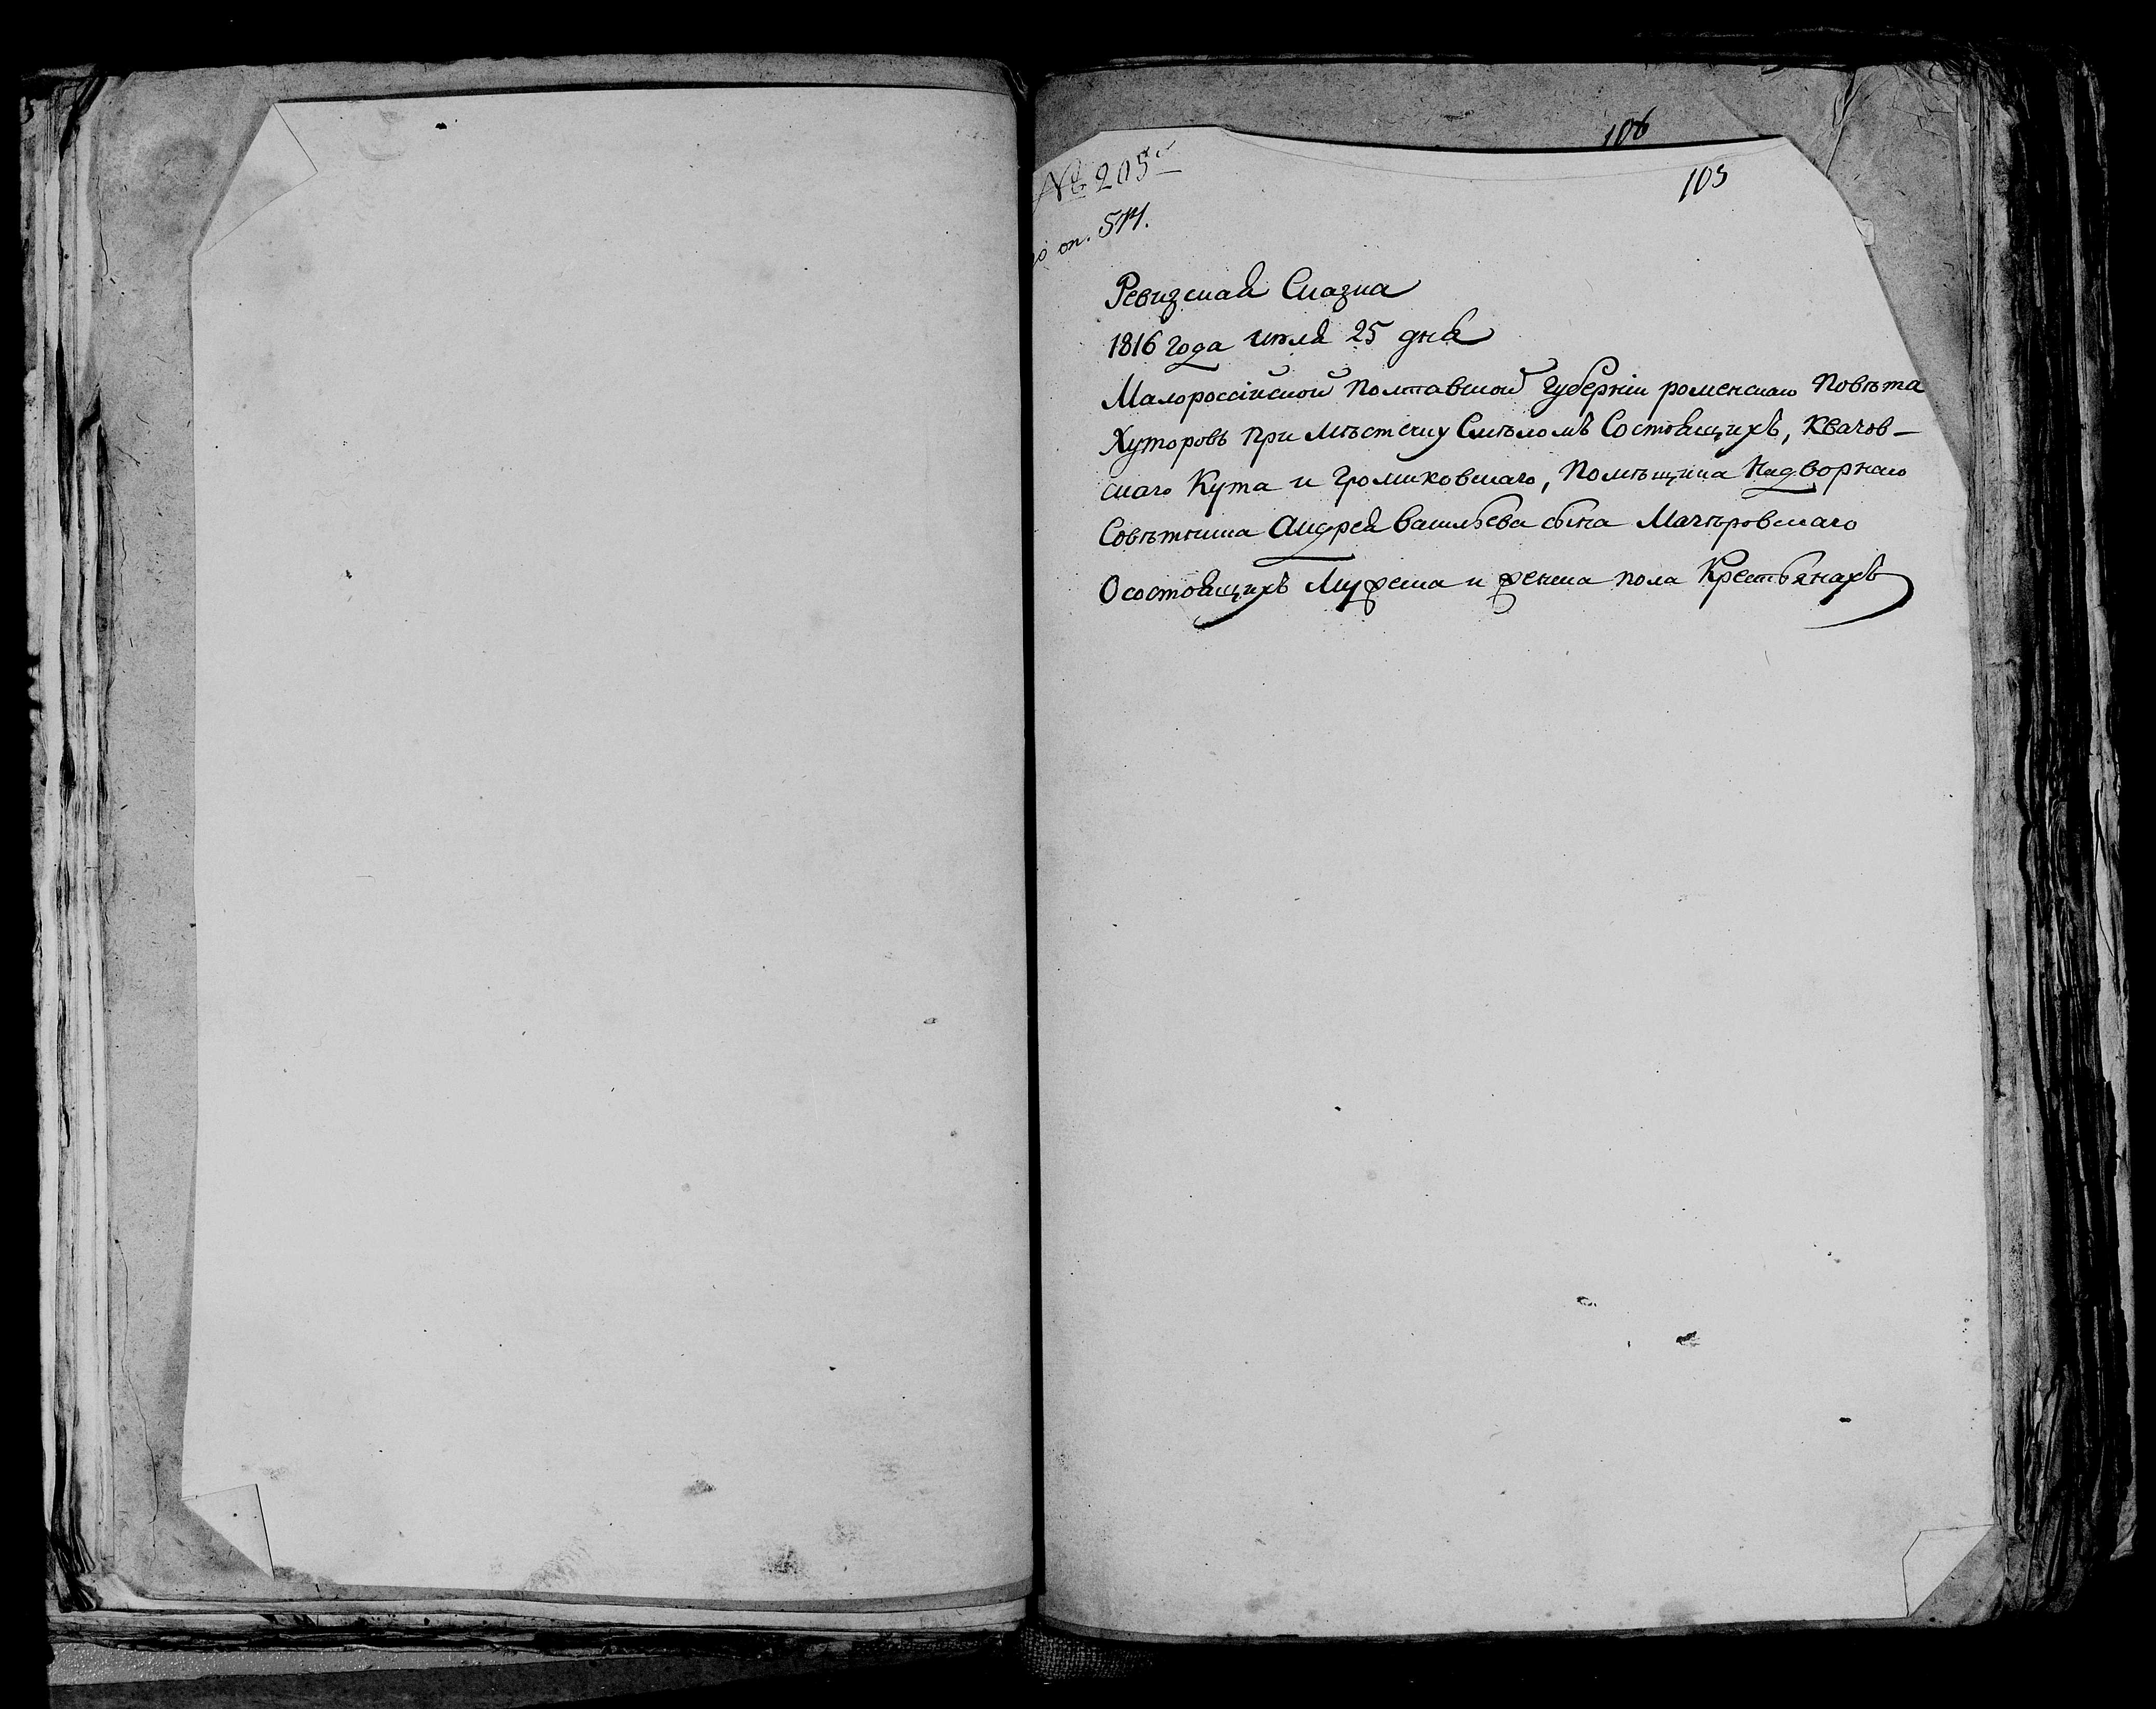 106
№ 205
105
по оп. 511.
Ревизская Сказка
1816 года июля 25 дня
Малороссійской Полтавской губерніи роменскаго Повѣта
Хуторовъ при Мѣстечку Смѣломъ Состоящихъ, Квачов-
скаго Кута и Громиковскаго, Помѣщика Надворнаго
Совѣтника Андрея Васильева сына Мачѣровскаго
О состоящихъ Мужеска и женска пола Крестьянахъ